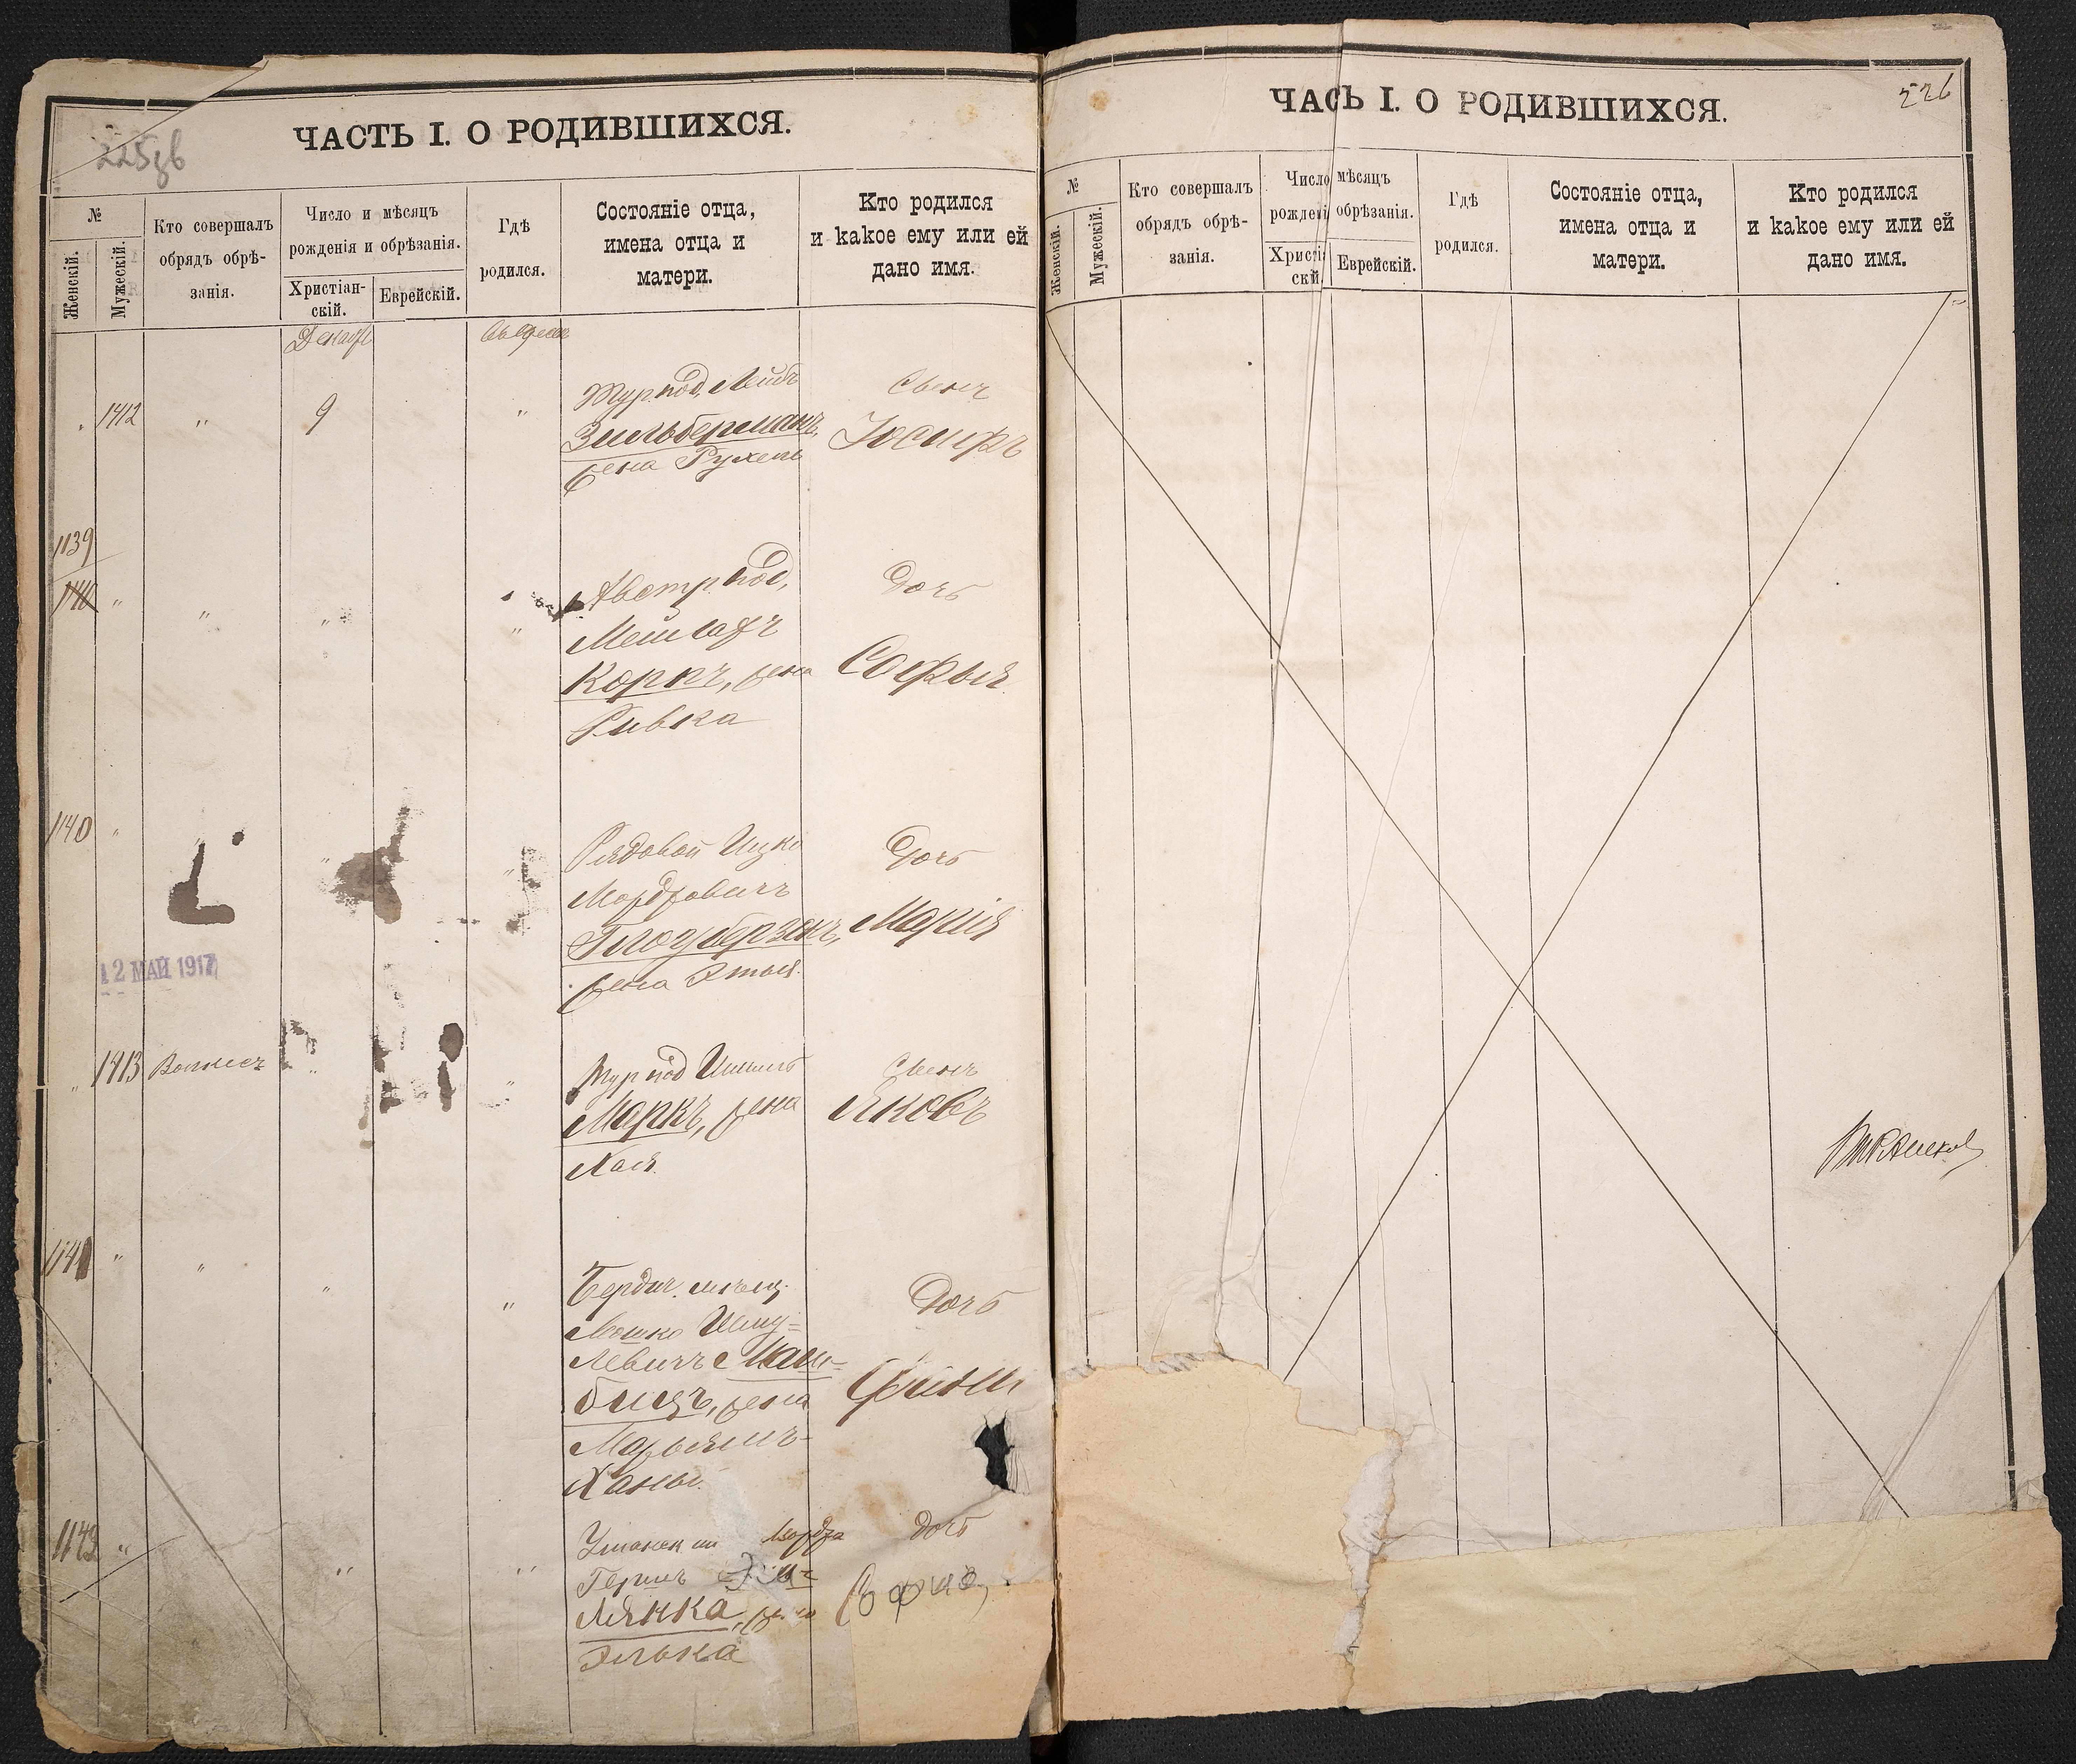 225 об
ЧАСТЬ I. О РОДИВШИХСЯ.
№
Женскій.
Мужескій.
Кто совершалъ
обрядъ обрѣ-
занія.
Число и мѣсяцъ
рожденія и обрѣзанія.
Христіан-
скій.
Еврейскій.
Гдѣ
родился.
Состояніе отца,
имена отца и
матери.
Кто родился
и какое ему или ей
дано имя.
Декабр
въ Одессѣ
" 1412 " 9 "
Тур. под. Лейбъ
Зильберманъ,
жена Рухель
Сынъ
Іосифъ
1139
1140 " " " "
Австр. под,
Мейлахъ
Коркъ, жена
Ривка
Дочь
Софья
1140 " " "
Рядовой Ицко
Мордковичъ
Глоузберзонъ,
жена Этья
Дочь
Марія
12 МАЙ 1917
" 1413 " "
Тур под
Маркъ, жена
Хая
Сынъ
Яковъ
1141 " " " "
Бердич. мѣщ.
Мошко Шму=
левичъ Май=
бицъ, жена
Марьямъ-
Ханы
Дочь
1142 " " "
Герш
Лянка, жена
Элька
Дочь
Софія,
226
ЧАСЬ I. О РОДИВШИХСЯ.
№
Женскій.
Мужескій.
Кто совершалъ
обрядъ обрѣ-
занія.
Число мѣсяцъ
рождені обрѣзанія.
Христі
скй.
Еврейскій.
Гдѣ
родился.
Состояніе отца,
имена отца и
матери.
Кто родился
и какое ему или ей
дано имя.